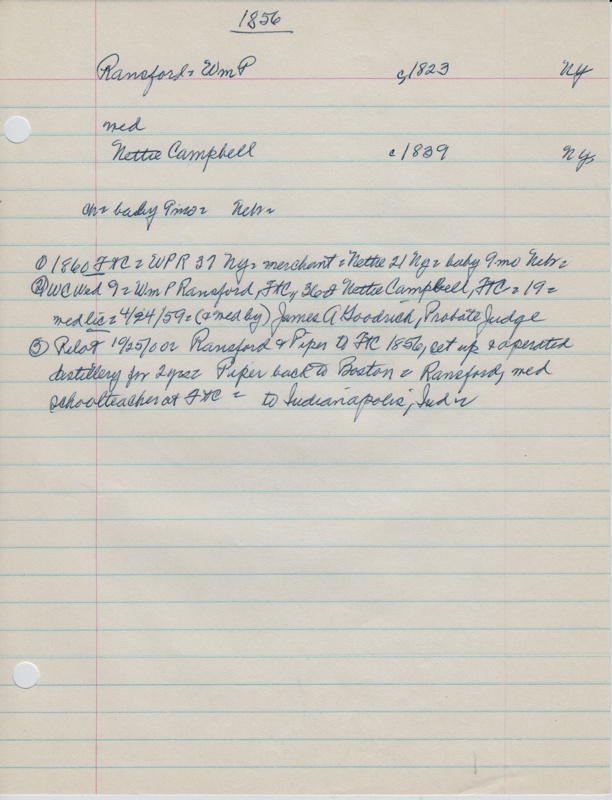 1856
Ransford = Wm P c1823 NY
med
Nettie Campbell c1839 NY
ch = baby 9mo = Nebr =
① 1860 FtC = WPR 37 NY = merchant = Nettie 21 NY = baby 9mo Nebr =
② WC Wed 9 = Wm P Ransford, FtC, 36 & Nettie Campbell, FtC = 19 =
med lic = 4/24/59 = (& med by) James A Goodrich, Probate Judge
③ Pilot Ransford & Piper to FtC 1856, set up & operated
distillery for 2yrs = Piper back to Boston = Ransford, med
schoolteacher at FtC = to Indianapolis, Ind =